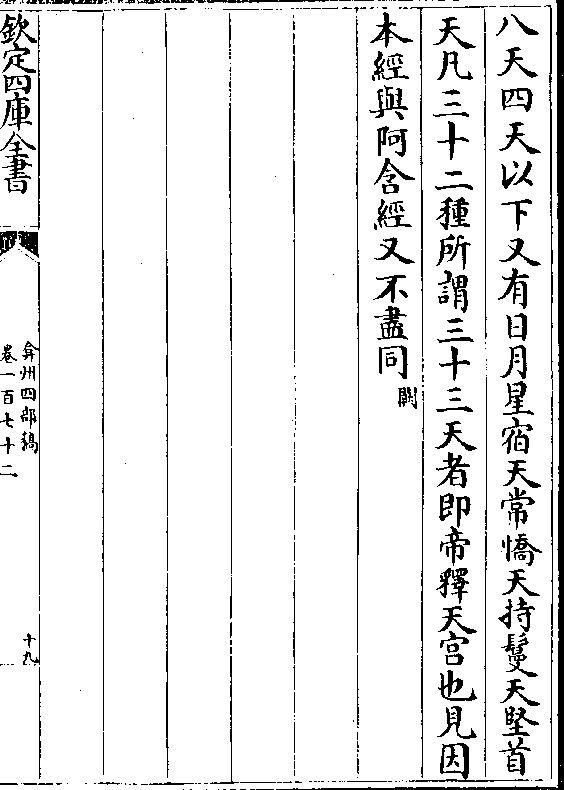 八天四天以下又有日月星宿天常憍天持鬘天堅首
天凡三十二種所謂三十三天者即帝釋天宫也見因
本經與阿含經又不盡同闕
欽定四庫全書
弇州四部稿
卷一百七十二
十九